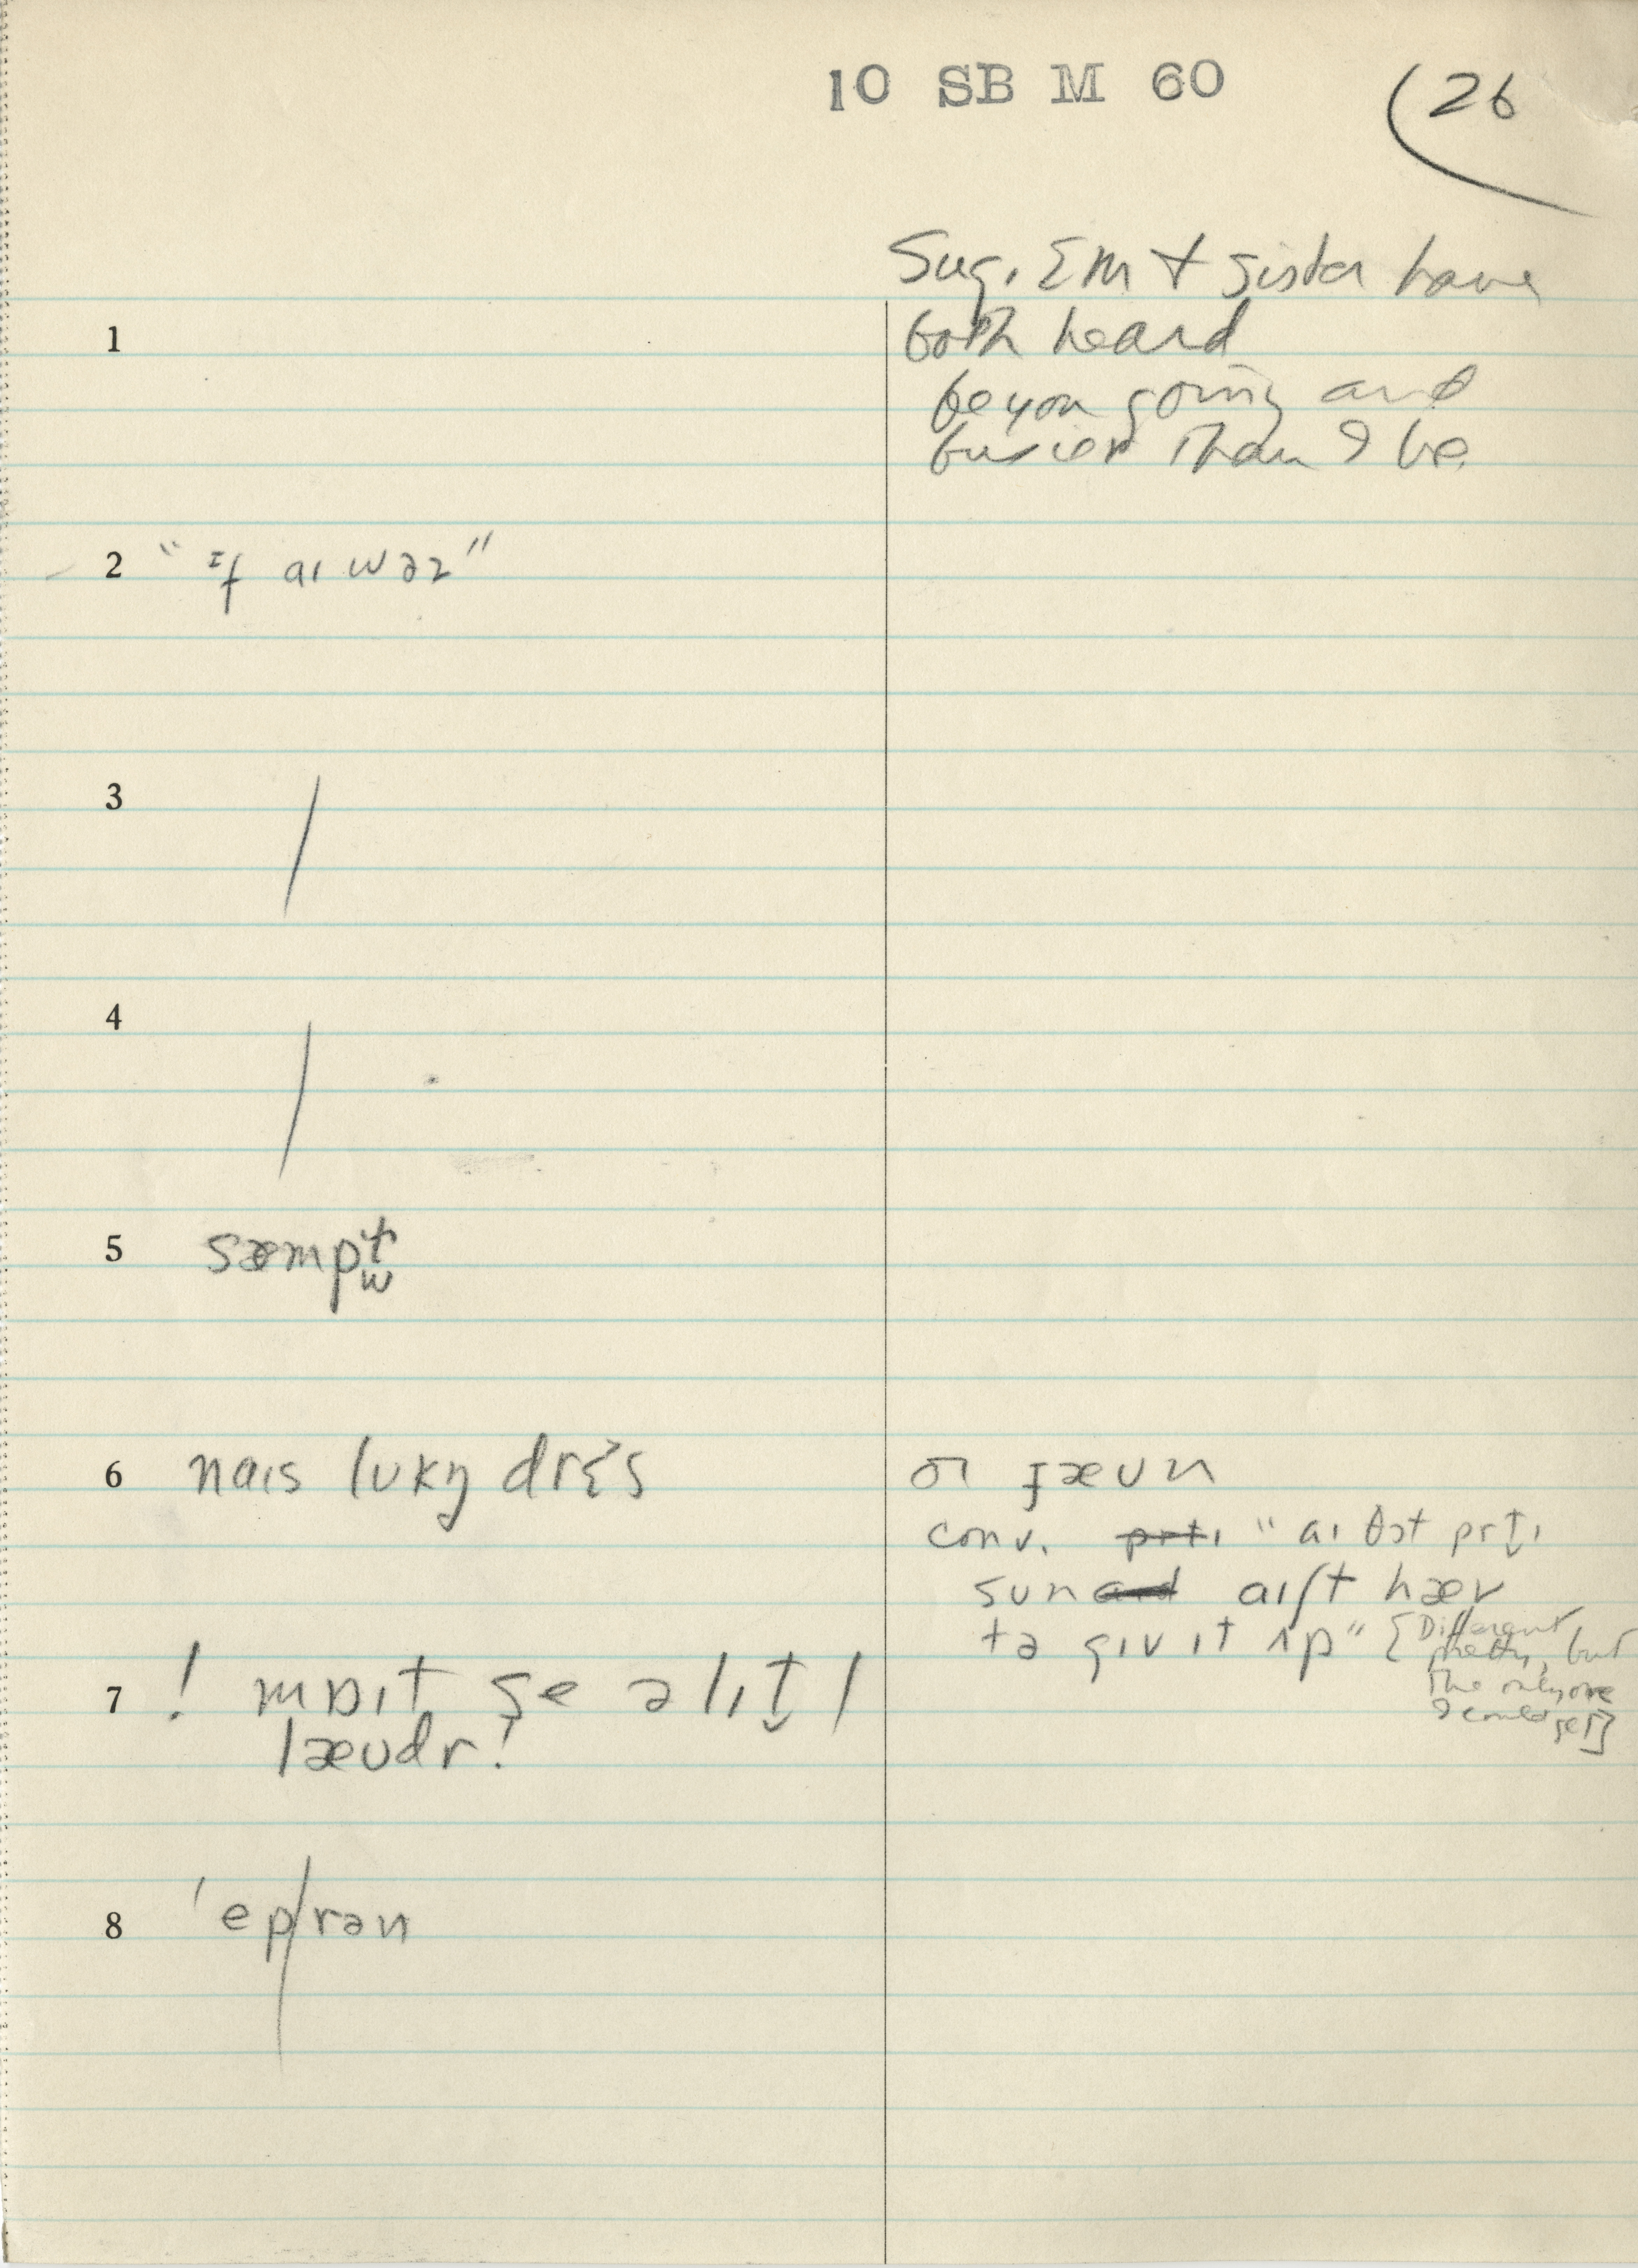 10 SB M 60
26
Sug. Em + sister have
1 both heard
be you going and
busier than I be
2 "ɪf aɪ wəz"
3 /
4 /
5 sæmpt
w
6 naɪs lʊkɪŋ drɛs
or gæʊn
conv. prti "aɪ ðət prt̬ɪ
sun aɪ hæv
tə gɪv ɪt ʌp" [Different
pretty, but
the only one
I could get]
7 ! mɒɪt se ə lɪt̬l
læʊdr!
8 'eprən